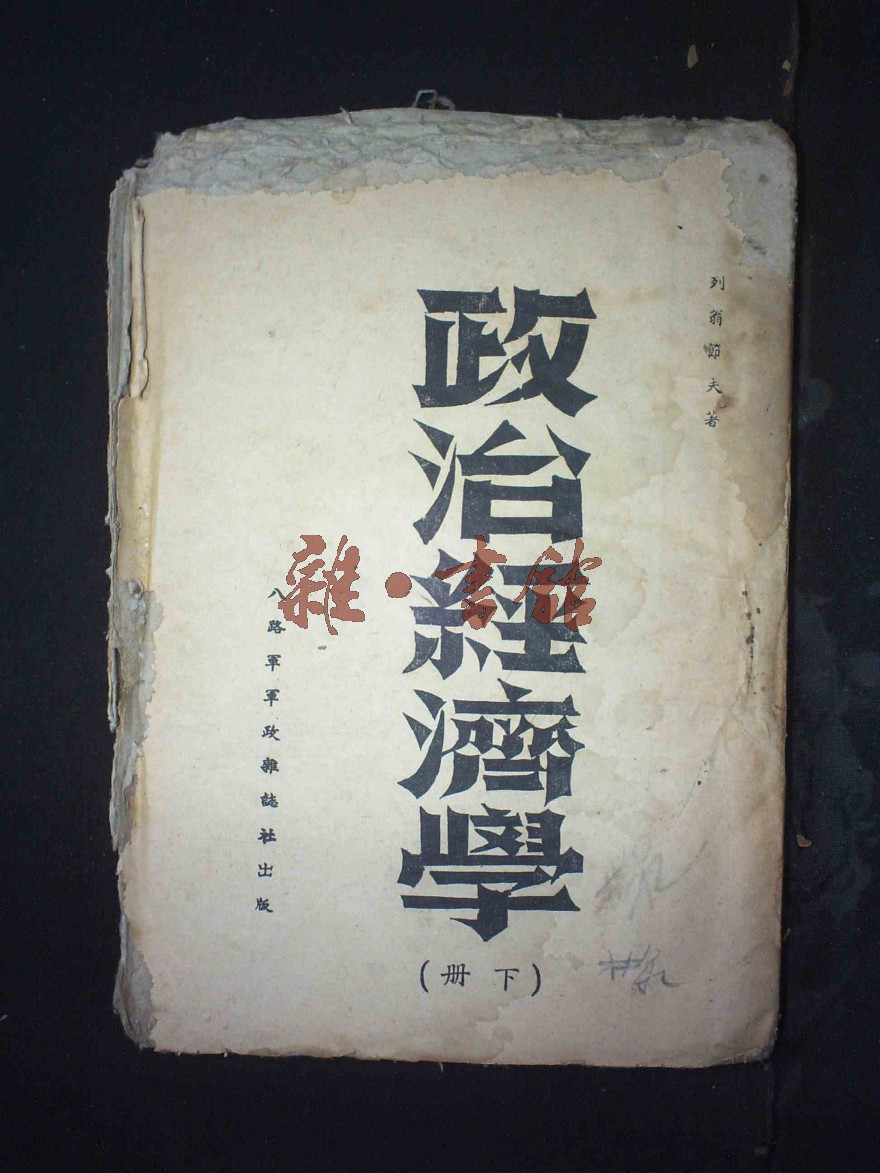 列翁節夫著
政治經濟學
(下册)
八路軍軍政雜誌社出版
雜·書館